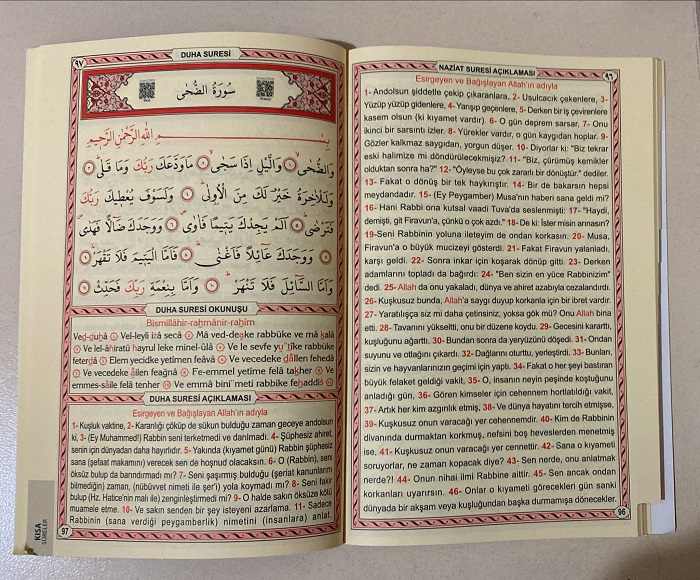 NAZİAT SURESİ AÇIKLAMASI
٩٦
Esirgeyen ve Bağışlayan Allah'ın adıyla
1- Andolsun şiddetle çekip çıkaranlara, 2- Usulcacık çekenlere, 3-
Yüzüp yüzüp gidenlere, 4- Yarışıp geçenlere, 5- Derken bir iş çevirenlere
kasem olsun (ki kıyamet vardır). 6- O gün deprem sarsar, 7- Onu
ikinci bir sarsıntı izler. 8- Yürekler vardır, o gün kaygıdan hoplar. 9-
Gözler kalkmaz saygıdan, yorgun düşer. 10- Diyorlar ki: "Biz tekrar
eski halimize mi döndürülecekmişiz? 11- "Biz, çürümüş kemikler
olduktan sonra ha?" 12- "Öyleyse bu çok zararlı bir dönüştür." dediler.
13- Fakat o dönüş bir tek haykırıştır. 14- Bir de bakarsın hepsi
meydandadır. 15- (Ey Peygamber) Musa'nın haberi sana geldi mi?
16- Hani Rabbi ona kutsal vaadi Tuva'da seslenmişti: 17- "Haydi,
demişti, git Firavun'a, çünkü o çok azdı." 18- De ki: İster misin arınasın?
19-Seni Rabbinin yoluna ileteyim de ondan korkasın. 20- Musa,
Firavun'a o büyük mucizeyi gösterdi. 21- Fakat Firavun yalanladı,
karşı geldi. 22- Sonra inkar için koşarak dönüp gitti. 23- Derken
adamlarını topladı da bağırdı: 24- "Ben sizin en yüce Rabbinizim"
dedi. 25- Allah da onu yakaladı, dünya ve ahiret azabıyla cezalandırdı.
26- Kuşkusuz bunda, Allah'a saygı duyup korkanla için bir ibret vardır.
27- Yaratılışça siz mi daha çetinsiniz, yoksa gök mü? Onu Allah bina
etti. 28- Tavanını yükseltti, onu bir düzene koydu. 29- Gecesini kararttı,
kuşluğunu ağarttı. 30- Bundan sonra da yeryüzünü döşedi. 31- Ondan
suyunu ve otlağını çıkardı. 32- Dağlarını oturttu, yerleştirdi. 33- Bunları,
sizin ve hayvanlarınızın geçimi için yaptı. 34- Fakat o her şeyi bastıran
büyük felaket geldiği vakit, 35- O, insanın neyin peşinde koştuğunu
anladığı gün, 36- Gören kimseler için cehennem hortlatıldığı vakit,
37- Artık her kim azgınlık etmiş, 38- Ve dünya hayatını tercih etmişse,
39- Kuşkusuz onun varacağı yer cehennemdir. 40- Kim de Rabbinin
divanında durmaktan korkmuş, nefsini boş heveslerden menetmiş
ise, 41- Kuşkusuz onun varacağı yer cennettir. 42- Sana o kıyameti
soruyorlar, ne zaman kopacak diye? 43- Sen nerde, onu anlatmak
nerde?! 44- Onun nihai ilmi Rabbine aittir. 45- Sen ancak ondan
korkanları uyarırsın. 46- Onlar o kıyameti görecekleri gün sanki
dünyada bir akşam veya kuşluğundan başka durmamışa dönecekler.
96
٩٧
DUHA SURESİ
سُورَةُ الضُّحٰى
بِسْمِ اللهِ الرَّحْمٰنِ الرَّحِيمِ
وَالضُّحٰى ١ وَالَّيْلِ اِذَا سَجٰى ٢ مَاوَدَّعَكَ رَبُّكَ وَمَا قَلٰى ٣
وَلَلْاٰخِرَةُ خَيْرٌ لَكَ مِنَ الْاُولٰى ٤ وَلَسَوْفَ يُعْطِيكَ رَبُّكَ
فَتَرْضٰى ٥ اَلَمْ يَجِدْكَ يَتِيمًا فَاٰوٰى ٦ وَوَجَدَكَ ضَالًّا فَهَدٰى
٧ وَوَجَدَكَ عَائِلًا فَاَغْنٰى ٨ فَاَمَّا الْيَتِيمَ فَلَا تَقْهَرْ ٩
وَاَمَّا السَّائِلَ فَلَا تَنْهَرْ ١٠ وَاَمَّا بِنِعْمَةِ رَبِّكَ فَحَدِّثْ ١١
DUHA SURESİ OKUNUŞU
Bismillâhir-rahmânir-rahîm
Ved-duhâ 1 Vel-leyli izâ secâ 2 Mâ ved-deake rabbüke ve mâ kalâ
3 Ve lel-âhiratü hayrul leke minel-ûlâ 4 Ve le sevfe yu'tîke rabbüke
feterdâ 5 Elem yecidke yetîmen feâvâ 6 Ve vecedeke dâllen fehedâ
7 Ve vecedeke âilen feağnâ 8 Fe-emmel yetîme felâ takher 9 Ve
emmes-sâile felâ tenher 10 Ve emmâ bini'meti rabbike fehaddis 11
DUHA SURESİ AÇIKLAMASI
Esirgeyen ve Bağışlayan Allah'ın adıyla
1- Kuşluk vaktine, 2- Karanlığı çöküp de sükun bulduğu zaman geceye andolsun
ki, 3- (Ey Muhammed!) Rabbin seni terketmedi ve darılmadı. 4- Şüphesiz ahiret,
senin için dünyadan daha hayırlıdır. 5- Yakında (kıyamet günü) Rabbin şüphesiz
sana (şefaat makamını) verecek sen de hoşnud olacaksın. 6- O (Rabbin), seni
öksüz bulup da barındırmadı mı? 7- Seni şaşırmış bulduğu (şeriat kanunlarını
bilmediğin) zaman, (nübüvvet nimeti ile şer'i) yola koymadı mı? 8- Seni fakir
bulup (Hz. Hatice'nin malı ile) zenginleştirmedi mi? 9- O halde sakın öksüze kötü
muamele etme. 10- Ve sakın senden bir şey isteyeni azarlama. 11- Sadece
Rabbinin (sana verdiği peygamberlik) nimetini (insanlara) anlat.
KISA
SURELER
97